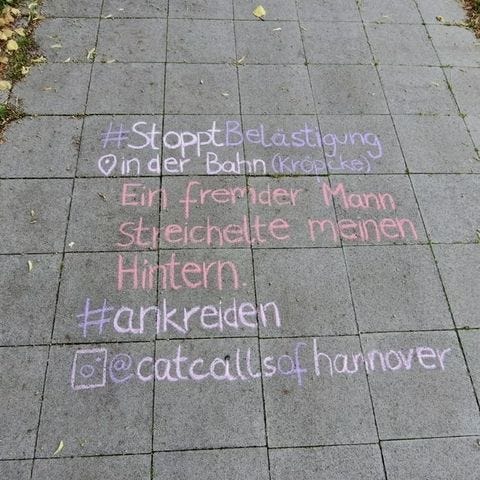 #StopptBelästigung
in der Bahn (Kröpcke)
Ein fremder Mann
streichelte meinen
Hintern.
#ankreiden
@catcallsofhannover